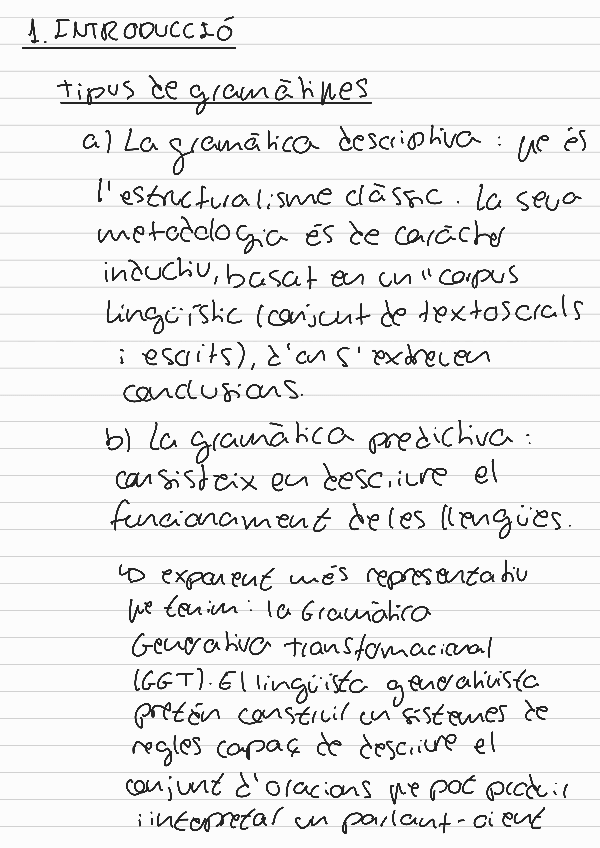 1. INTRODUCCIÓ
tipus de gramàtiques
a) La gramàtica descriptiva: que és
l'estructuralisme clàssic. La seva
metodologia és de caràcter
inductiu, basat en un "corpus
lingüístic (conjunt de textos orals
i escrits), d'on s'extreuen
conclusions.
b) La gramàtica predictiva:
consisteix en descriure el
funcionament de les llengües.
↳ exponent més representatiu
que tenim: la Gramàtica
Generativa transformacional
(GGT). El lingüista generativista
pretén construir un sistemes de
regles capaç de descriure el
conjunt d'oracions que pot produir
i interpretar un parlant-oient